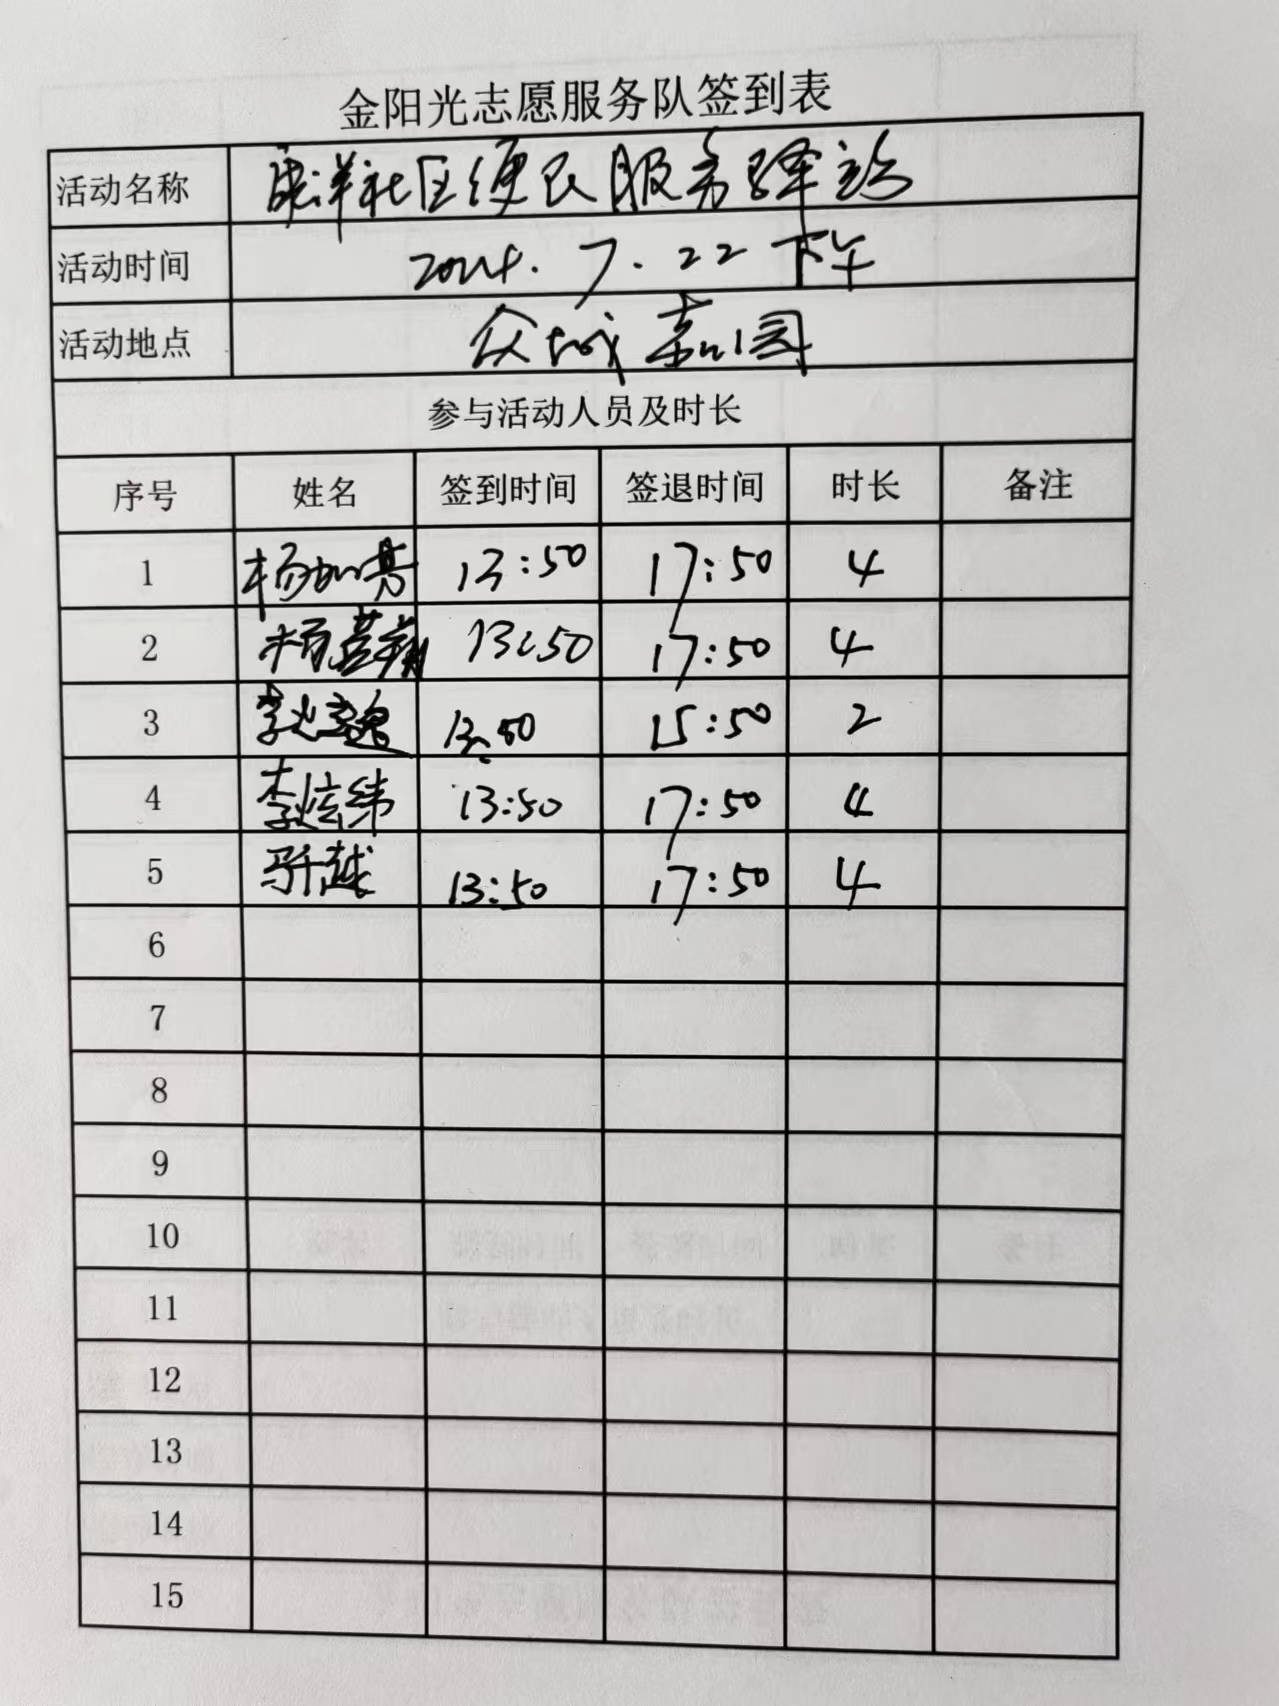 金阳光志愿服务队签到表
活动名称 康洋社区便民服务驿站
活动时间 2024.7.22下午
活动地点 众城嘉园
参与活动人员及时长
序号 姓名 签到时间 签退时间 时长 备注
1 13:50 17:50 4
2 13:50 17:50 4
3 13:50 15:50 2
4 李炫纬 13:50 17:50 4
5 13:50 17:50 4
6
7
8
9
10
11
12
13
14
15